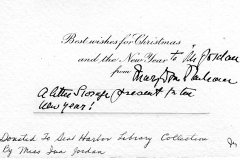 Best wishes for Christmas
and the New Year to Ms Jordan
from Mary
A little present for the
New Year!
Donated To Seal Harbor Library Collection
By Miss Ina Jordan